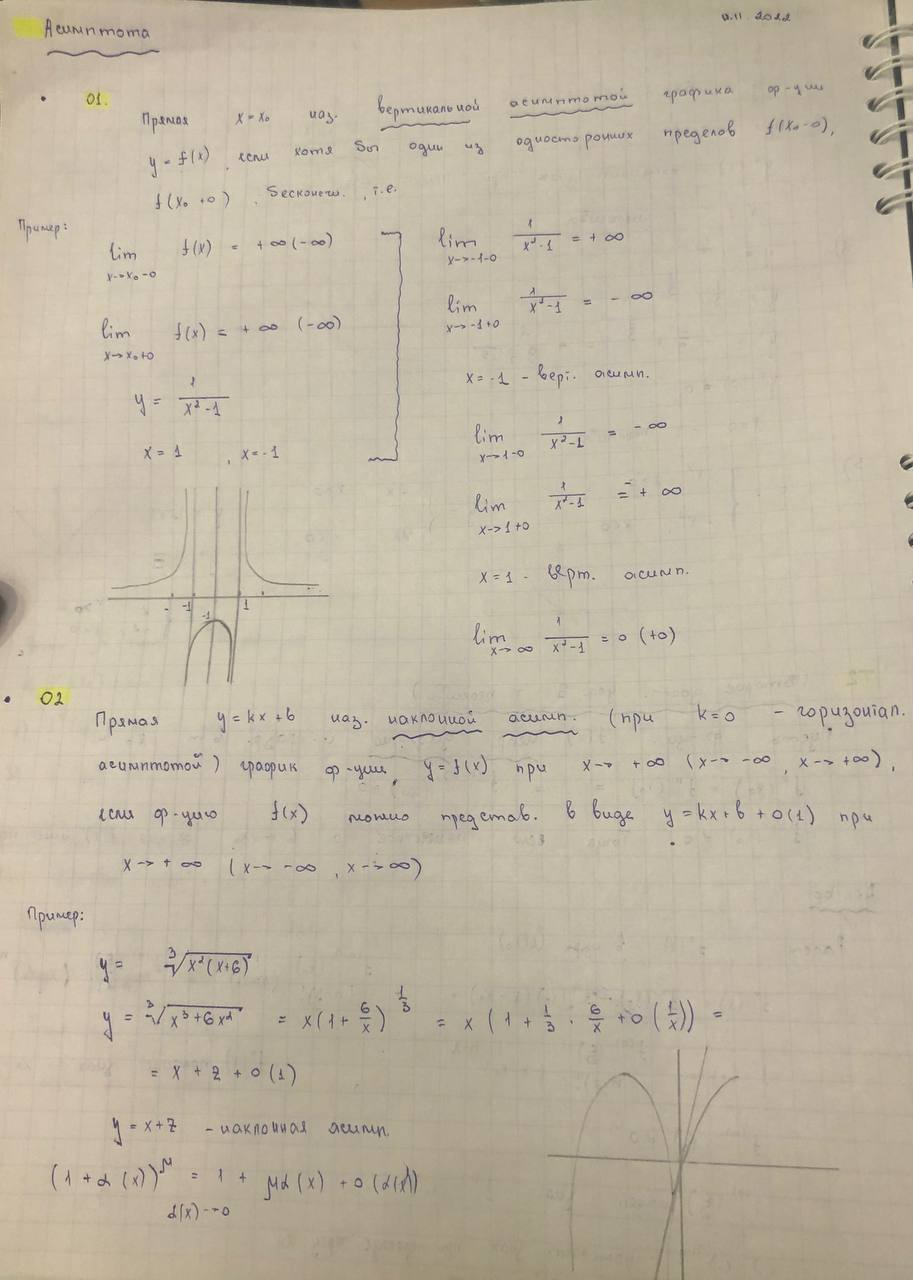 Асимптота
11.11 2022
• 01.
Прямая x=x₀ наз. вертикальной асимптотой графика ф-ции
y = f(x), если хотя бы один из односторонних пределов f(x₀-0),
f(x₀+0), бесконеч., т.е.
Пример:
lim f(x) = +∞(-∞)
x→x₀-0
lim f(x) = +∞ (-∞)
x→x₀+0
y = 1/(x²-1)
x = 1 , x=-1
lim 1/(x²-1) = +∞
x→-1-0
lim 1/(x²-1) = -∞
x→-1+0
x=-1 - верт. асимп.
lim 1/(x²-1) = -∞
x→1-0
lim 1/(x²-1) = +∞
x→1+0
x=1 - верт. асимп.
lim 1/(x²-1) = 0 (+0)
x→∞
-1 1
-1
• 02
Прямая y=kx+b наз. наклонной асимп. (при k=0 - горизонтал.
асимптотой) график ф-ции, y=f(x) при x→ +∞ (x→ -∞, x→ +∞),
если ф-цию f(x) можно представ. в виде y=kx+b+o(1) при
x→ +∞ (x→ -∞, x→∞)
Пример:
y = ∛(x²(x+6))
y = ∛(x³+6x²) = x(1+6/x)^(1/3) = x(1+1/3·6/x+o(1/x)) =
= x + 2 + o(1)
y = x+2 - наклонная асимп.
(1+α(x))^μ = 1 + μα(x) + o(α(x))
α(x)→0